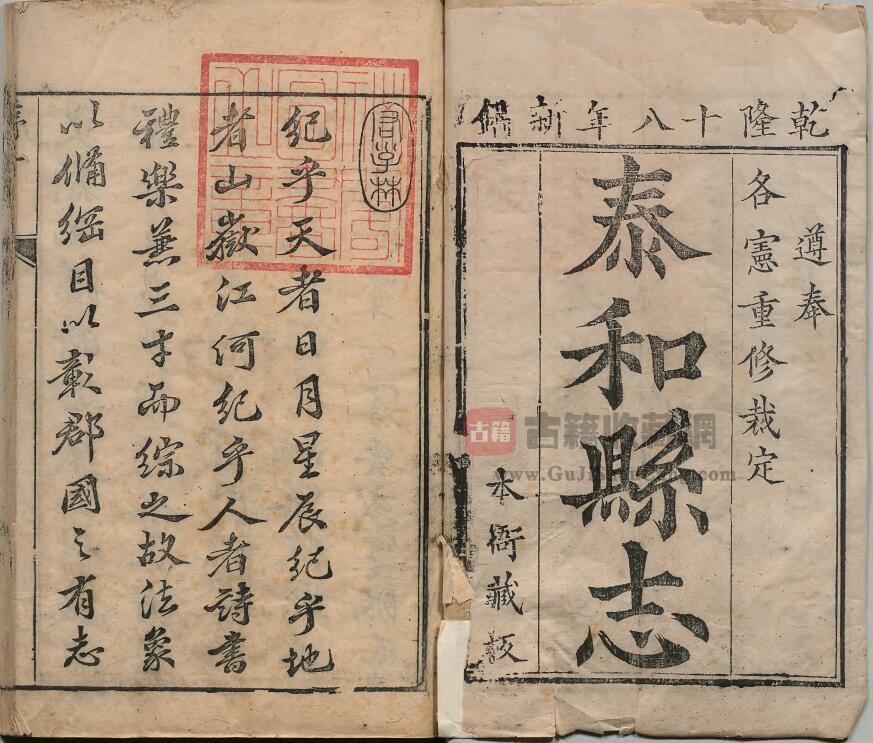 乾隆十八年新鐫
遵奉
各憲重修裁定
泰和縣志
本衙藏板
紀乎天者日月星辰紀乎地
者山嶽江河紀乎人者詩書
禮樂蕪三才而綜之故法象
以備綱目以彰郡國之有志
古籍 古籍收藏网
www.GuJi